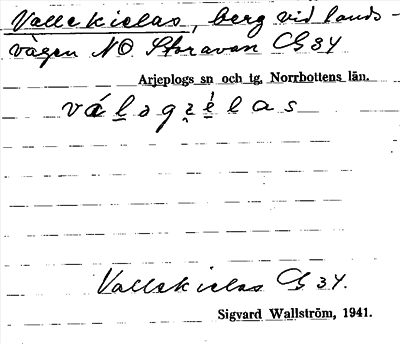 Vallekielas, berg vid lands-
vägen NO. Storavan CG 34
Arjeplogs sn och tg. Norrbottens län.
Vallekielas CG 34.
Sigvard Wallström, 1941.